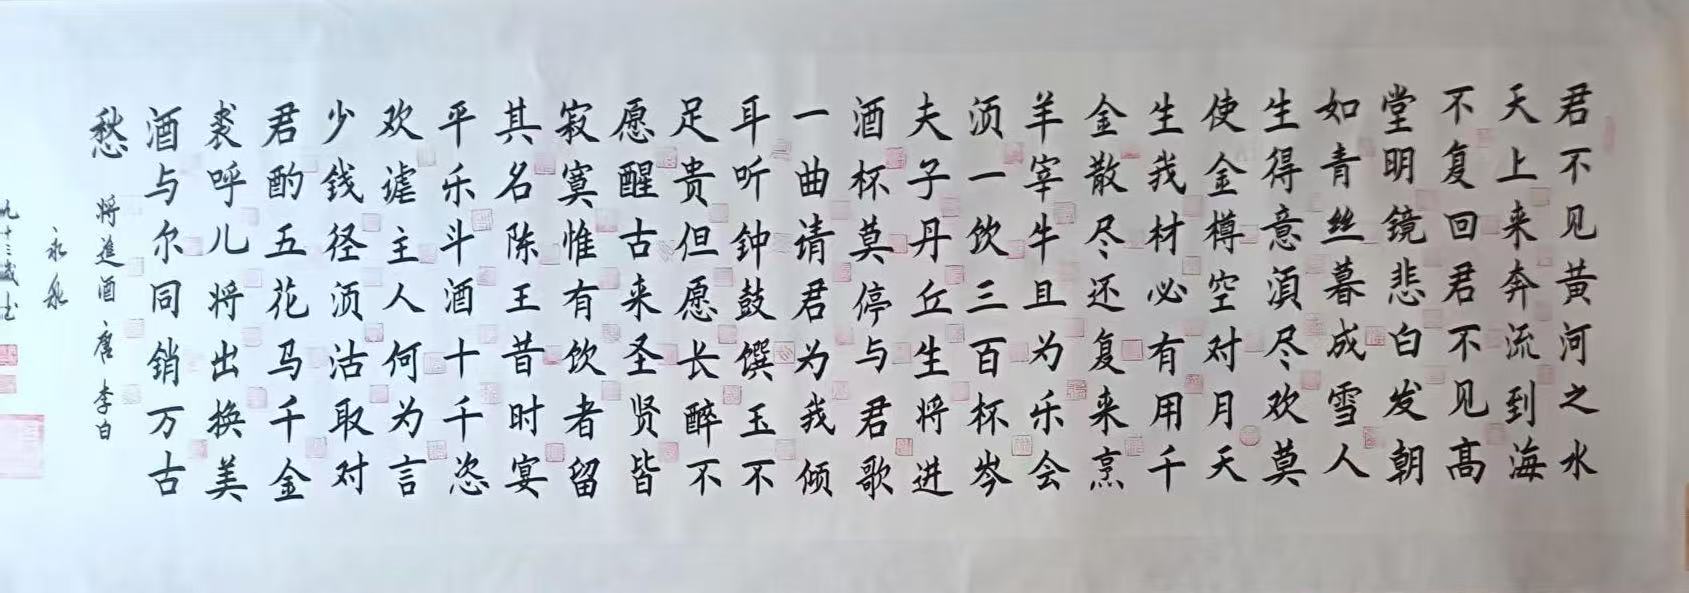 君不见黄河之水
天上来奔流到海
不复回君不见高
堂明镜悲白发朝
如青丝暮成雪人
生得意湏尽欢莫
使金樽空对月天
生我材必有用千
金散尽还复来烹
羊宰牛且为乐会
湏一饮三百杯岑
夫子丹丘生将进
酒杯莫停与君歌
一曲请君为我倾
耳听钟鼓馔玉不
足贵但愿长醉不
愿醒古来圣贤皆
寂寞惟有饮者留
其名陈王昔时宴
平乐斗酒十千恣
欢谑主人何为言
少钱径湏沽取对
君酌五花马千金
裘呼儿将出换美
酒与尔同销万古
愁
将進酒 唐 李白
永
九十三岁书